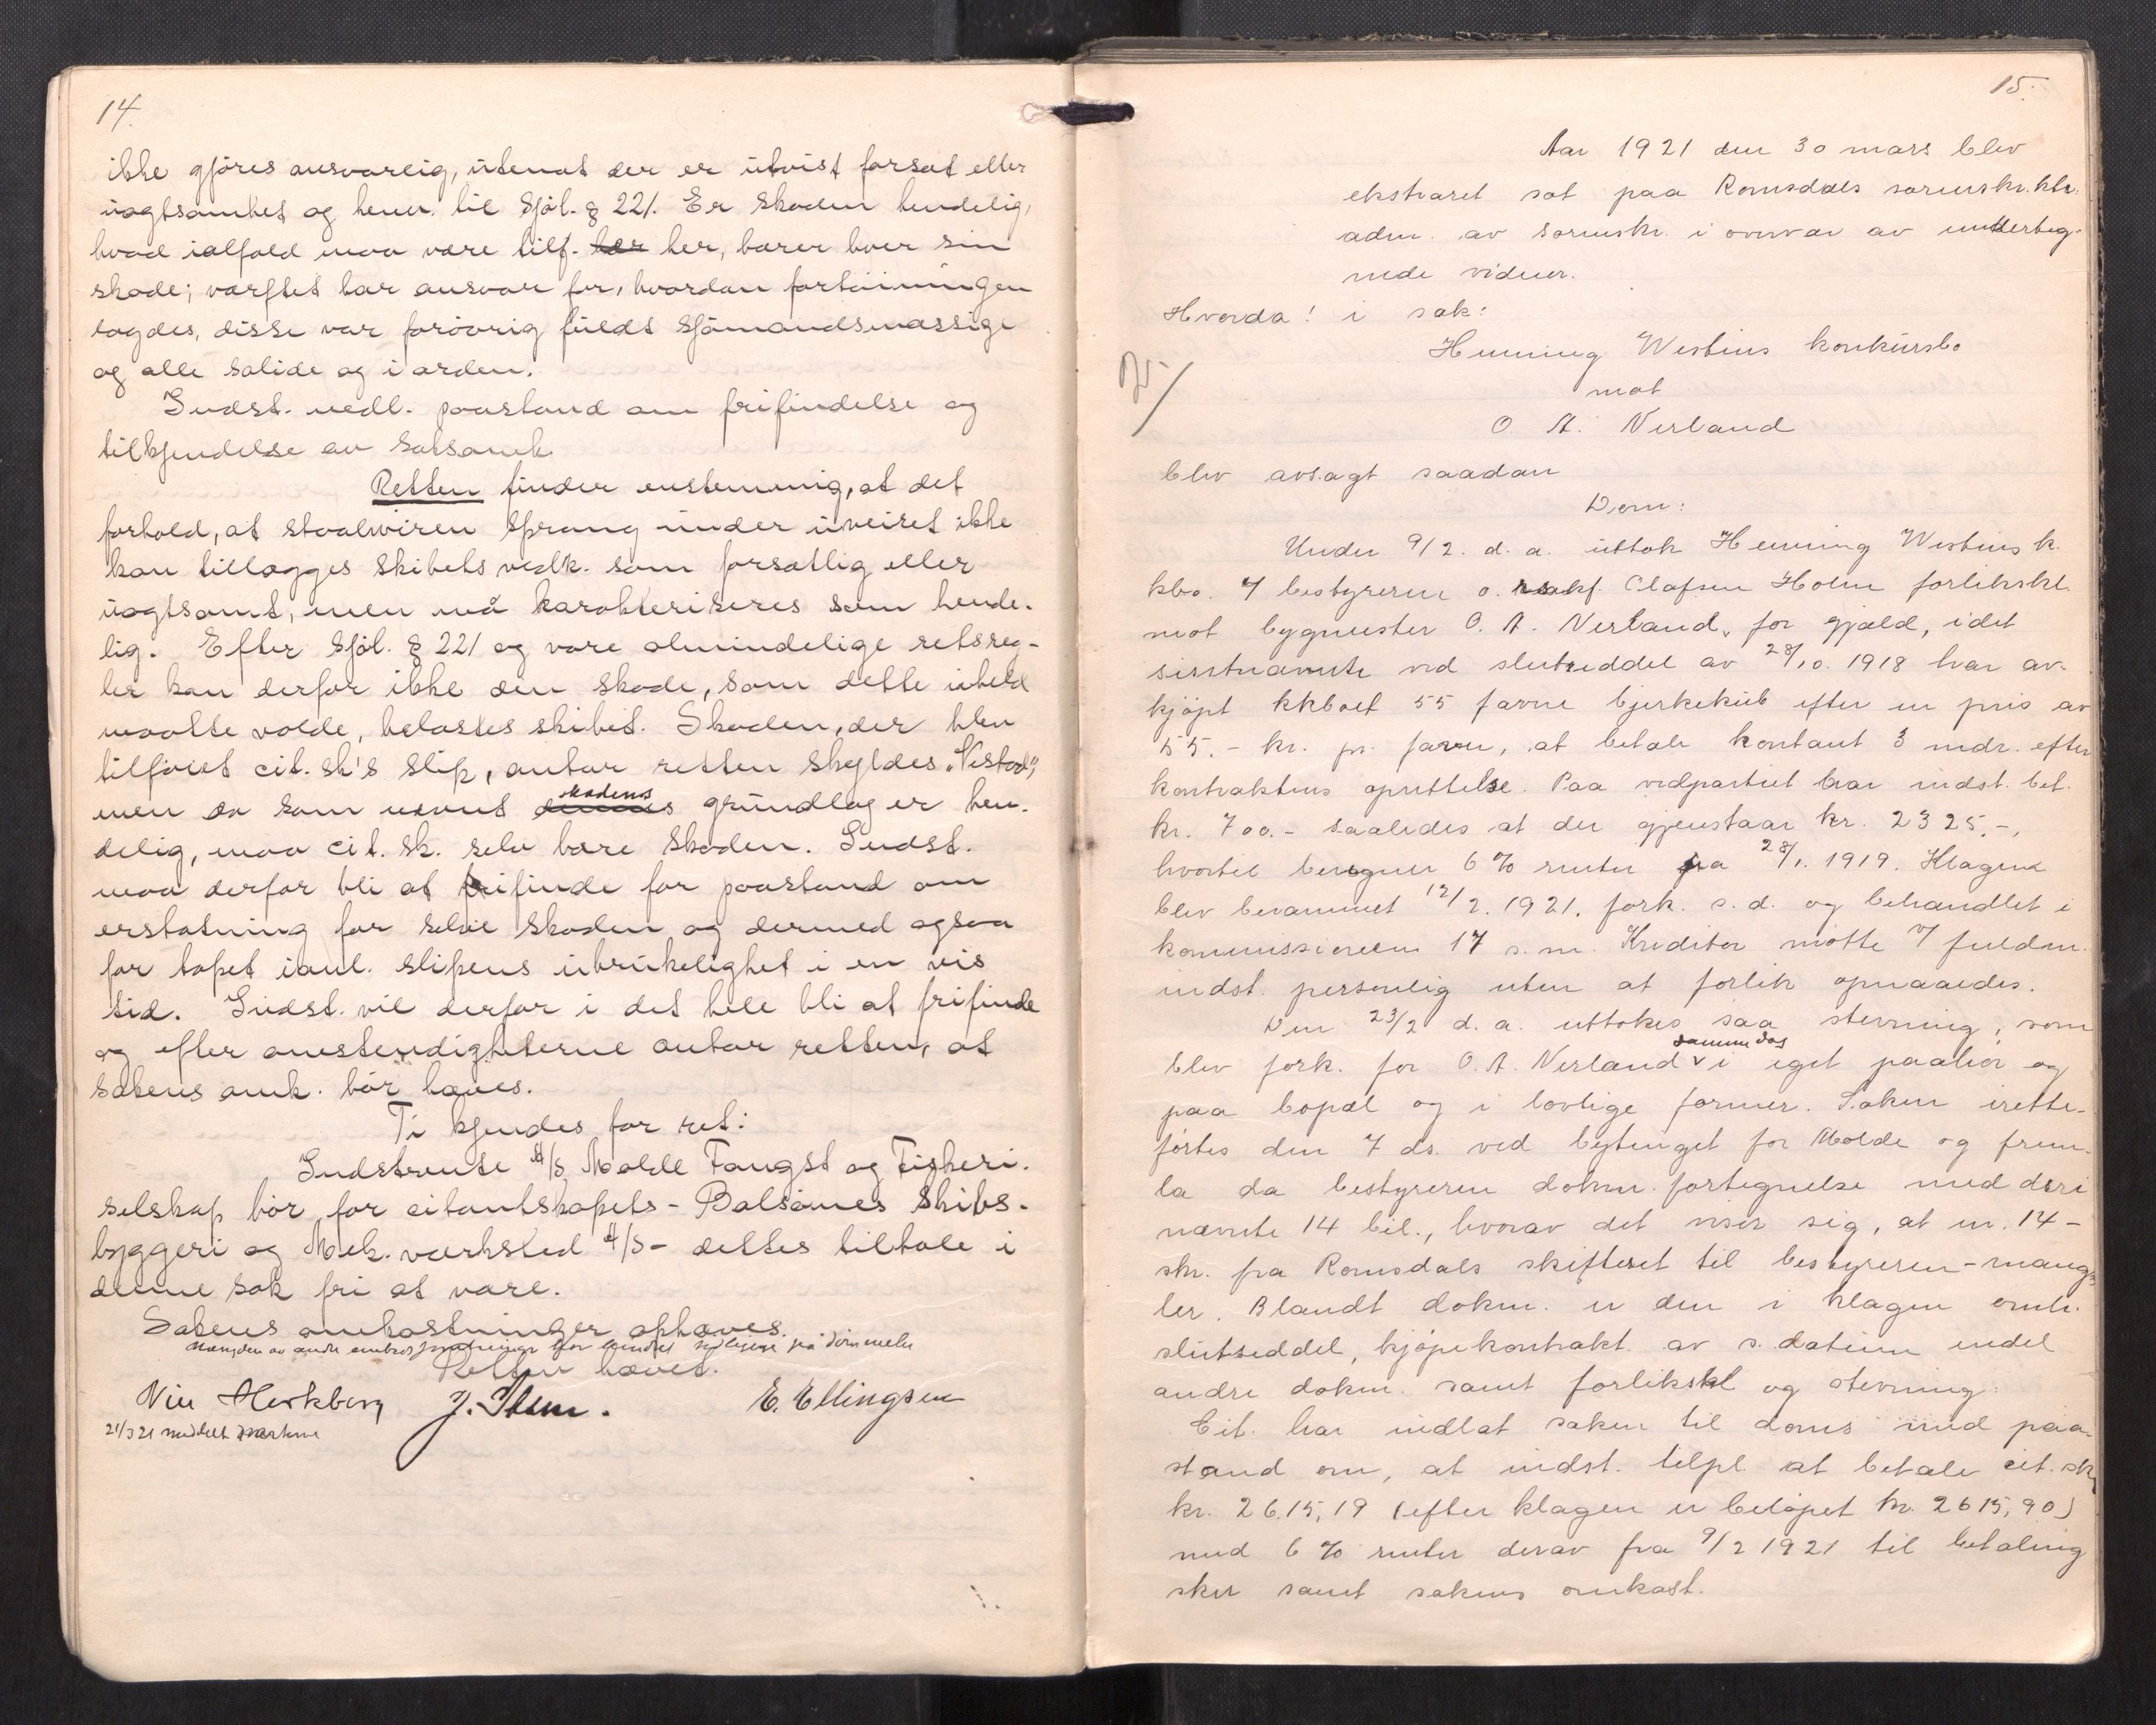 14.
ikke gjöres ansvarlig, utenat der er utvist forsæt eller
uagtsomhet og henv. til Sjöl. § 221. Er skaden hendelig,
hvad ialfald maa være tilf. her, bærer hver sin
skade; værftet har ansvar for, hvordan fortöiningen
lagdes, disse var forövrig fuldt sjömandsmæssige
og alle solide og i orden.
Indst. nedl. paastand om frifindelse og
tilkjendelse av saksomk.
Retten finder enstemmig, at det
forhold, at staalwiren sprang under uveiret ikke
kan tillægges skibets vedk. som forsætlig eller
uagtsomt, men må karakteriseres som hende-
lig. Efter Sjöl. § 221 og vore almindelige retsreg-
ler kan derfor ikke den skade, som dette uheld
maatte volde, belastes skibet. Skaden, der blev
tilföiet cit. sk's slip, antar retten skyldes „Vestad",
men da som nævnt skadens grundlag er hen-
delig, maa cit. sk. selv bære skaden. Indst.
maa derfor bli at frifinde for paastand om
erstatning for selve skaden og dermed ogsaa
for tapet ianl. slipens ubrukelighet i en vis
tid. Indst. vil derfor i det hele bli at frifinde
og efter omstendigheterne antar retten, at
sakens omk. bör hæves.
Ti kjendes for ret:
Indstevnte A/S Molde Fangst og Fiskeri-
selskap bör for citantskapets - Bolsönes Skibs-
byggeri og Mek. værksted A/S - dettes tiltale i
denne sak fri at være.
Sakens omkostninger ophæves.
Mængden av andre embedsforretninger har hindret
Retten hævet.
J. Stem. E. Ellingsen
21/3 21 meddelt parterne
15.
Aar 1921 den 30 mars blev
ekstraret sat paa Romsdals sorenskr.ktr.
adm. av sorenskr. i overvær av underteg-
nede vidner.
Hvorda! i sak:
Henning Westins konkursbo
mot
O. A. Nerland
blev avsagt saadan
Dom:
Under 9/2. d. a. uttok Henning Westins k.
kbo. v/ bestyreren o. rsakf. Olafsen Holm forlikskl.
mot bygmester O. A. Nerland, for gjæld, idet
sisstnævnte ved slutseddel av 28/10. 1918 har av-
kjöpt kkboet 55 favne bjerkekub efter en pris av
55.- kr. pr. favn, at betale kontant 3 mdr. efter
kontraktens oprettelse. Paa vedpartiet har indst. bet.
kr. 700.- saaledes at der gjenstaar kr. 2325.-,
hvortil beregnes 6 % renter fra 28/1. 1919. Klagen
blev berammet 12/2. 1921, fork. s. d. og behandlet i
kommissionen 17 s. m. Kreditor mötte v/ fuldm.
indst. personlig uten at forlik opnaaedes.
Den 23/2 d. a. uttokes saa stevning, som
blev fork. for O. A. Nerland samme dag i eget paahör og
paa bopæl og i lovlige former. Saken irette-
förtes den 7 ds. ved bytinget for Molde og frem-
la da bestyreren dokm. fortegnelse med deri
nævnte 14 bil., hvorav det viser sig, at nr. 14 -
skr. fra Romsdals skifteret til bestyreren - mang-
ler. Blandt dokm. er den i klagen omh.
slutseddel, kjöpekontrakt av s. datum endel
andre dokm. samt forlikskl og stevning.
Cit. har indlat saken til doms med paa-
stand om, at indst. tilpl. at betale cit. sk.
kr. 2615,19 (efter klagen er belöpet kr. 2615,90)
med 6 % renter derav fra 9/2 1921 til betaling
sker samt sakens omkost.